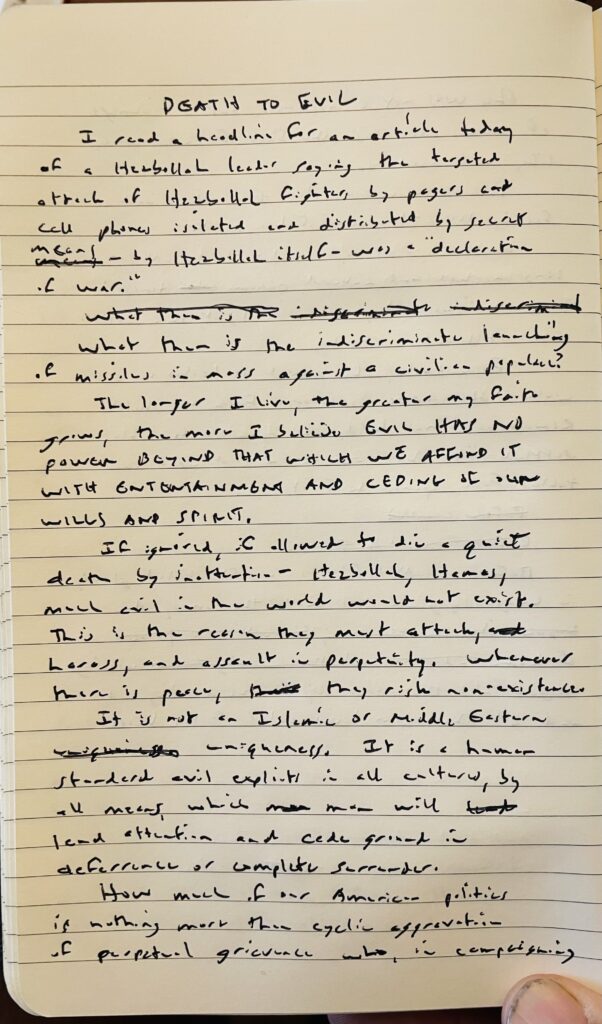 DEATH TO EVIL
I read a headline for an article today
of a Hezbollah leader saying the targeted
attack of Hezbollah fighters by pagers and
cell phones isolated and distributed by secret
means means - by Hezbollah itself - was a "declaration
of war."
What then is the indiscriminate indiscrimina
What then is the indiscriminate launching
of missiles in mass against a civilian populace?
The longer I live, the greater my faith
grows, the more I believe EVIL HAS NO
POWER BEYOND THAT WHICH WE AFFORD IT
WITH ENTERTAINMENT AND CEDING OF OUR
WILLS AND SPIRIT.
If ignored, if allowed to die a quiet
death by inattention - Hezbollah, Hamas,
much evil in the world would not exist.
This is the reason they must attack, and
harass, and assault in perpetuity. Whenever
there is peace, they risk non-existence.
It is not an Islamic or Middle Eastern
uniqueness uniqueness. It is a human
standard evil exploits in all cultures, by
all means, which man man will lend
lend attention and cede ground in
deferrence or complete surrender.
How much of our American politics
is nothing more than cyclic aggravation
of perpetual grievance who, in campaigning